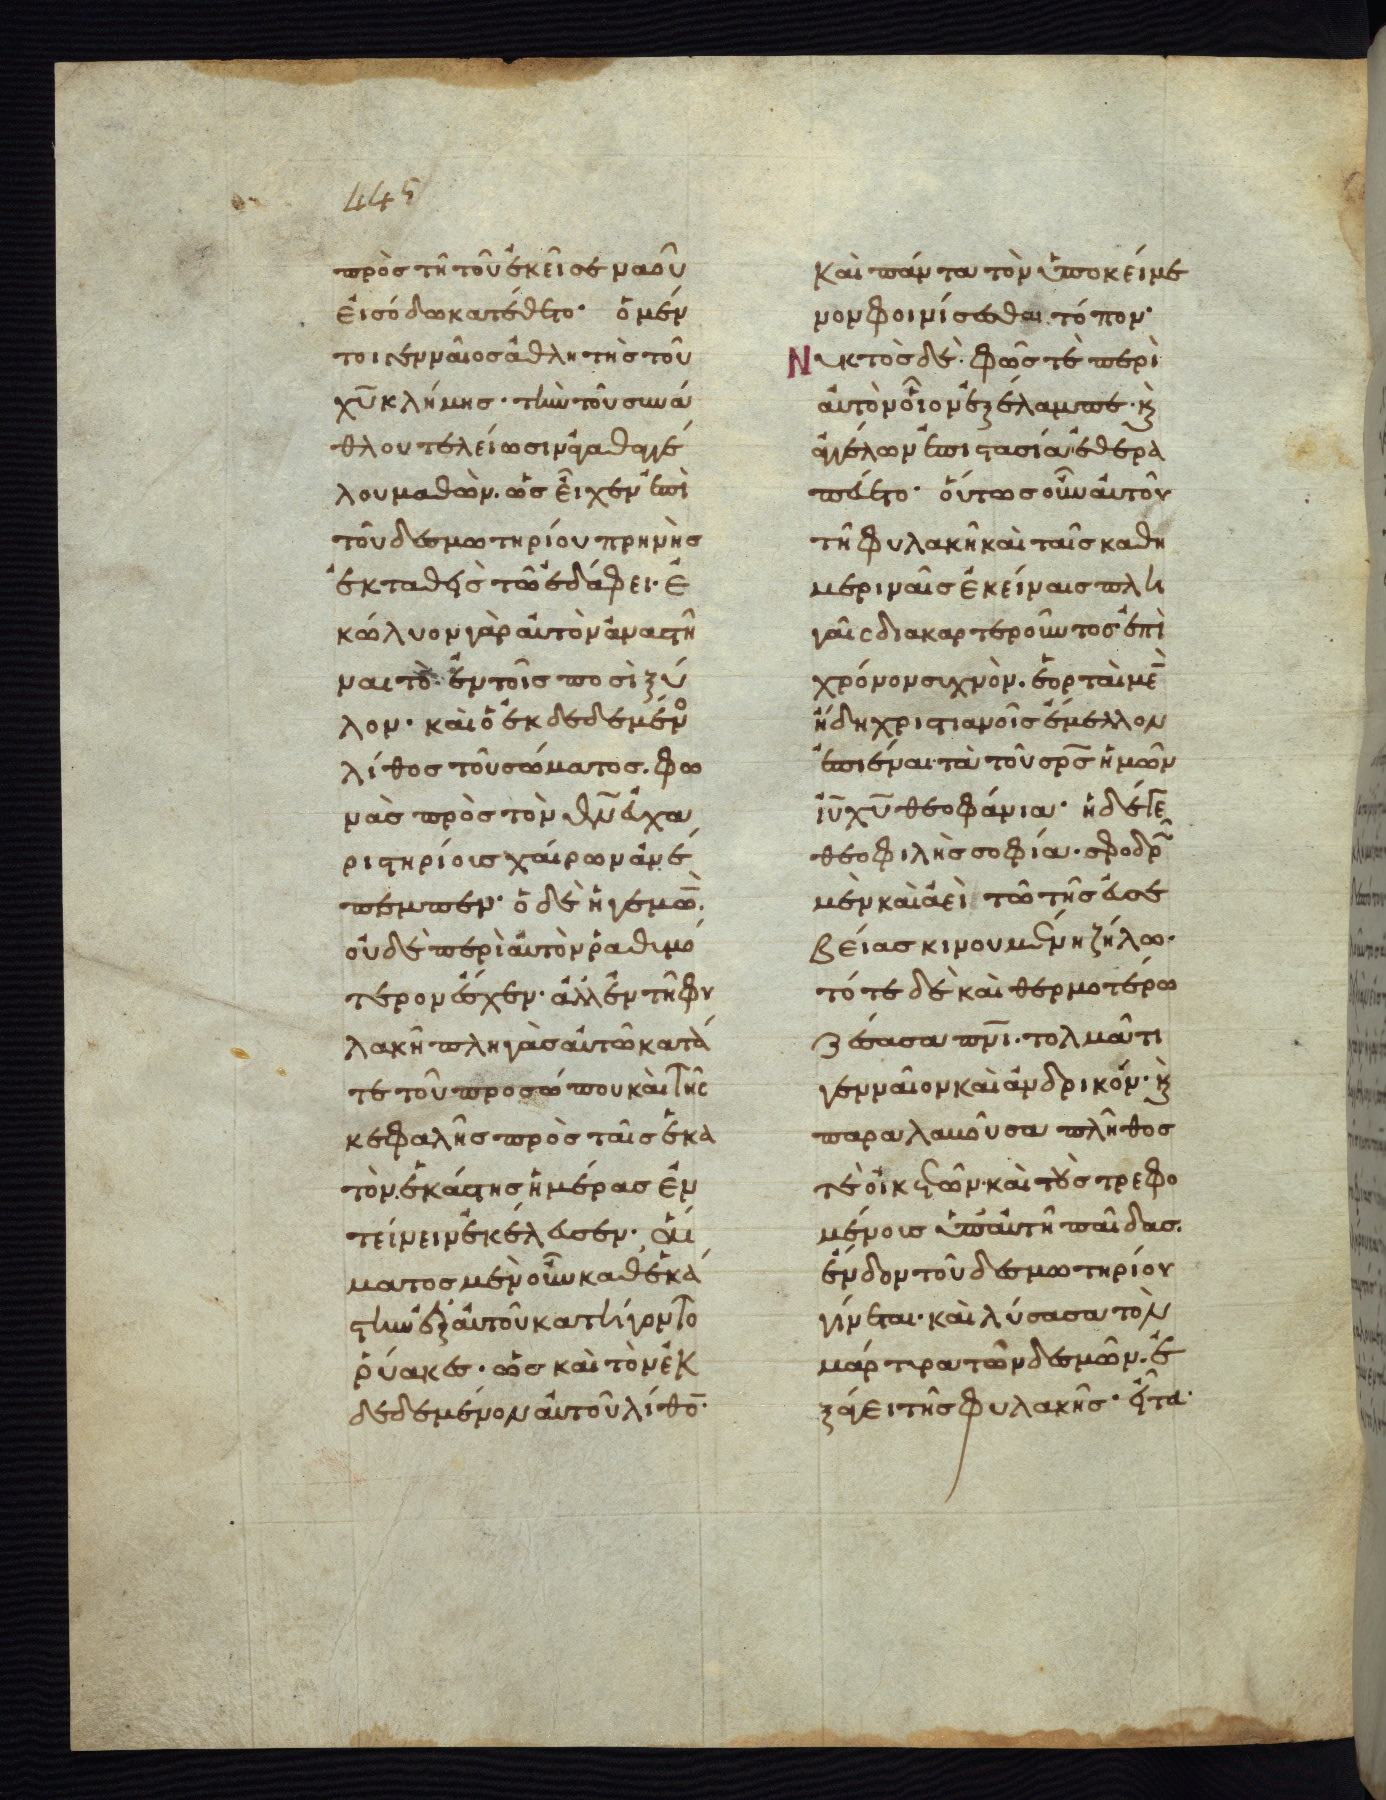 445
πρὸς τῆ τοῦ ἐκεῖσε ναοῦ
εἰσόδω κατέθετο· ὁ μέν
τοι γενναῖος ἀθλητὴς τοῦ
χῦ κλήμης· τὴν τοῦ συνά
θλου τελείωσιν ἀγαθαγγέ
λου μαθὼν. ὡς εἶχεν ἐπὶ
τοῦ δεσμωτηρίου πρηνὴς
ἐκταθεὶς τῶ ἐδάφει· ἐ
κώλυον γὰρ αὐτὸν ἀναστῆ
ναι τὸ ἐν τοῖς ποσὶ ξύ
λον· καὶ ὁ ἐκδεδεμένο
λίθος τοῦ σώματος. φω
νὰς πρὸς τὸν θν̄ εὐχα
ριστηρίοις χαίρων ἀνέ
πεμπεν· ὁ δὲ ἡγεμὼ̄.
οὐδὲ περὶ αὐτὸν ῥαθυμό
τερον ἔσχεν· ἀλλ' ἐν τῆ φυ
λακῆ πληγὰς αὐτῶ κατά
τε τοῦ προσώπου καὶ τῆς
κεφαλῆς πρὸς ταῖς ἑκα
τὸν. ἑκάστης ἡμέρας ἐν
τείνειν ἐκέλευσεν· αἵ
ματος μὲν οὖν καθ' ἑκά
στην ἐξ αὐτοῦ κατήγοντο
ῥύακες· ὡς καὶ τὸν ἐκ
δεδεμένον αὐτοῦ λίθο̄·
καὶ πάντα τὸν ὑποκείμε
νον φοινίσσεσθαι τόπον·
Νυκτὸς δὲ· φῶς τὲ περὶ
αὐτὸν θεῖον ἐξέλαμπε· κ̀
ἀγγέλων ἐπιστασία ἐθερα
πεύετο· οὕτως οὖν αὐτοῦ
τῆ φυλακῆ καὶ ταῖς καθη
μεριναῖς ἐκείναις πλη
γαῖς διακαρτεροῦντος ἐπὶ
χρόνον συχνὸν. ἑορταὶ μὲ̄
ἤδη χριστιανοῖς ἔμελλον
ἐπιέναι· τὰ τοῦ σρ̄ς ἡμῶν
ἰῦ χῦ θεοφάνια· ἡ δέ γε
θεοφιλὴς σοφία· σφοδρῶ
μὲν καὶ ἀεὶ τῶ τῆς εὐσε
βείας κινουμένη ζήλω·
τότε δὲ καὶ θερμοτέρω
ζέσασα πν̄ι. τολμᾶ τι
γενναῖον καὶ ἀνδρικόν· κ̀
παραλαβοῦσα πλῆθος
τὲ οἰκετῶν· καὶ τοὺς τρεφο
μένους ὑπ' αὐτῆ παῖδας.
ἔνδον τοῦ δεσμωτηρίου
γίνεται· καὶ λύσασα τὸν
μάρτυρα τῶν δεσμῶν. ἐ
ξάγει τῆς φυλακῆς· εἶτα·